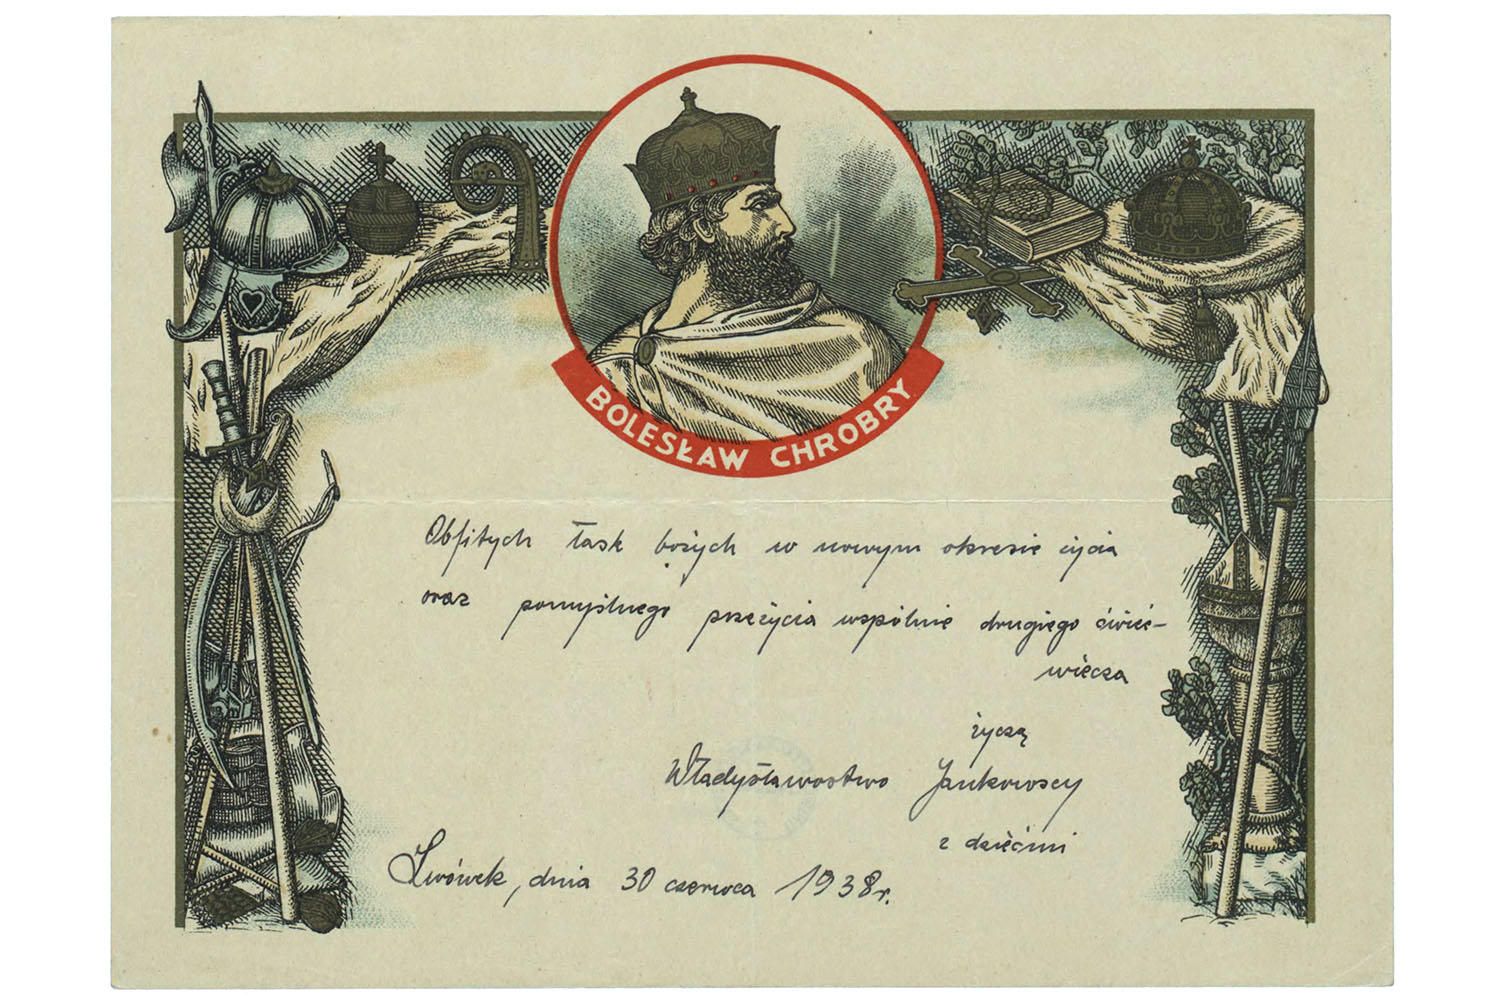 BOLESŁAW CHROBRY
Obfitych łask bożych w nowym okresie życia
oraz pomyślnego przeżycia wspólnie drugiego ćwieć-
wiecza
życzą
Władysławostwo Jankowscy
z dziećmi
Lwówek, dnia 30 czerwca 1938 r.